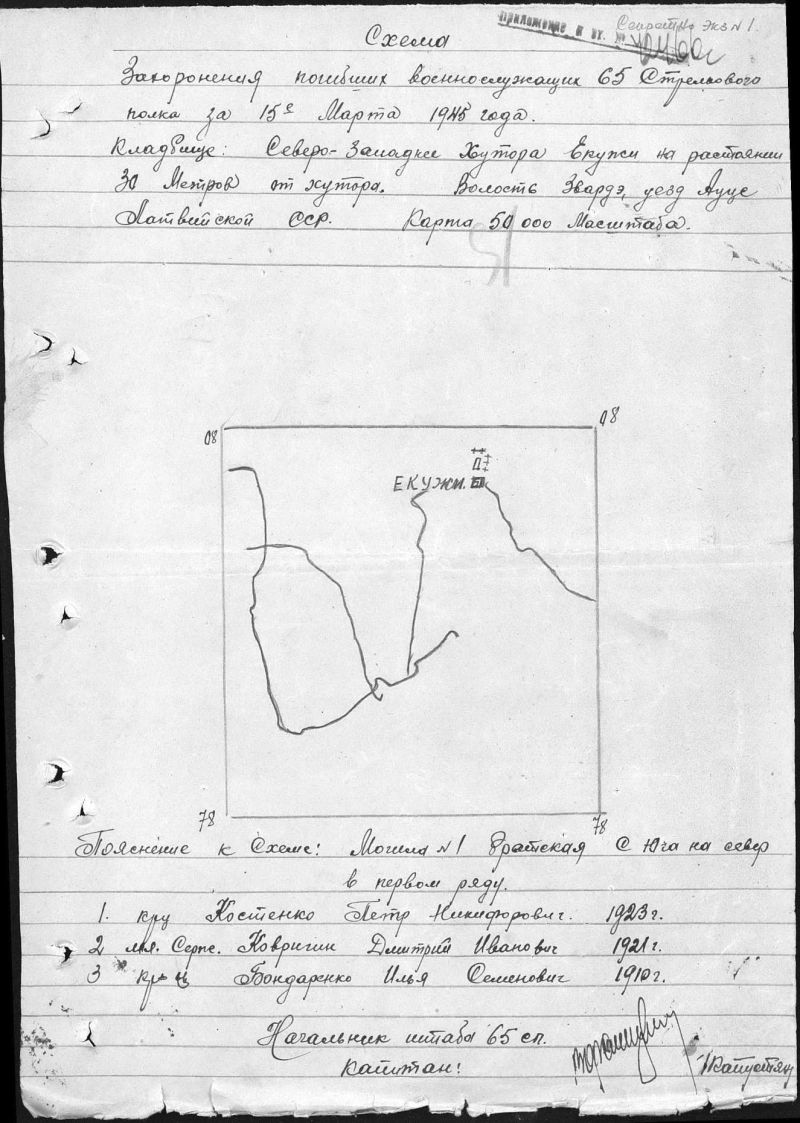 Приложение к вх. №
Секретно Экз № 1.
Схема
Захоронения погибших военнослужащих 65 Стрелкового
полка за 15е Марта 1945 года.
Кладбище: Северо-Западнее Хутора Екужи на расстоянии
30 Метров от хутора. Волость Звардэ, уезд Ауце
Латвийской ССР. Карта 50 000 Масштаба.
08 08
ЕКУЖИ.
78 78
Пояснение к Схеме: Могила №1 Братская С Юга на север
в первом ряду.
1. кр-ц Костенко Петр Никифорович. 1923 г.
2 мл. Серж. Ковригин Дмитрий Иванович 1921 г.
3 кр-ц Бондаренко Илья Семенович 1910 г.
Начальник штаба 65 сп.
капитан:
/Капустян